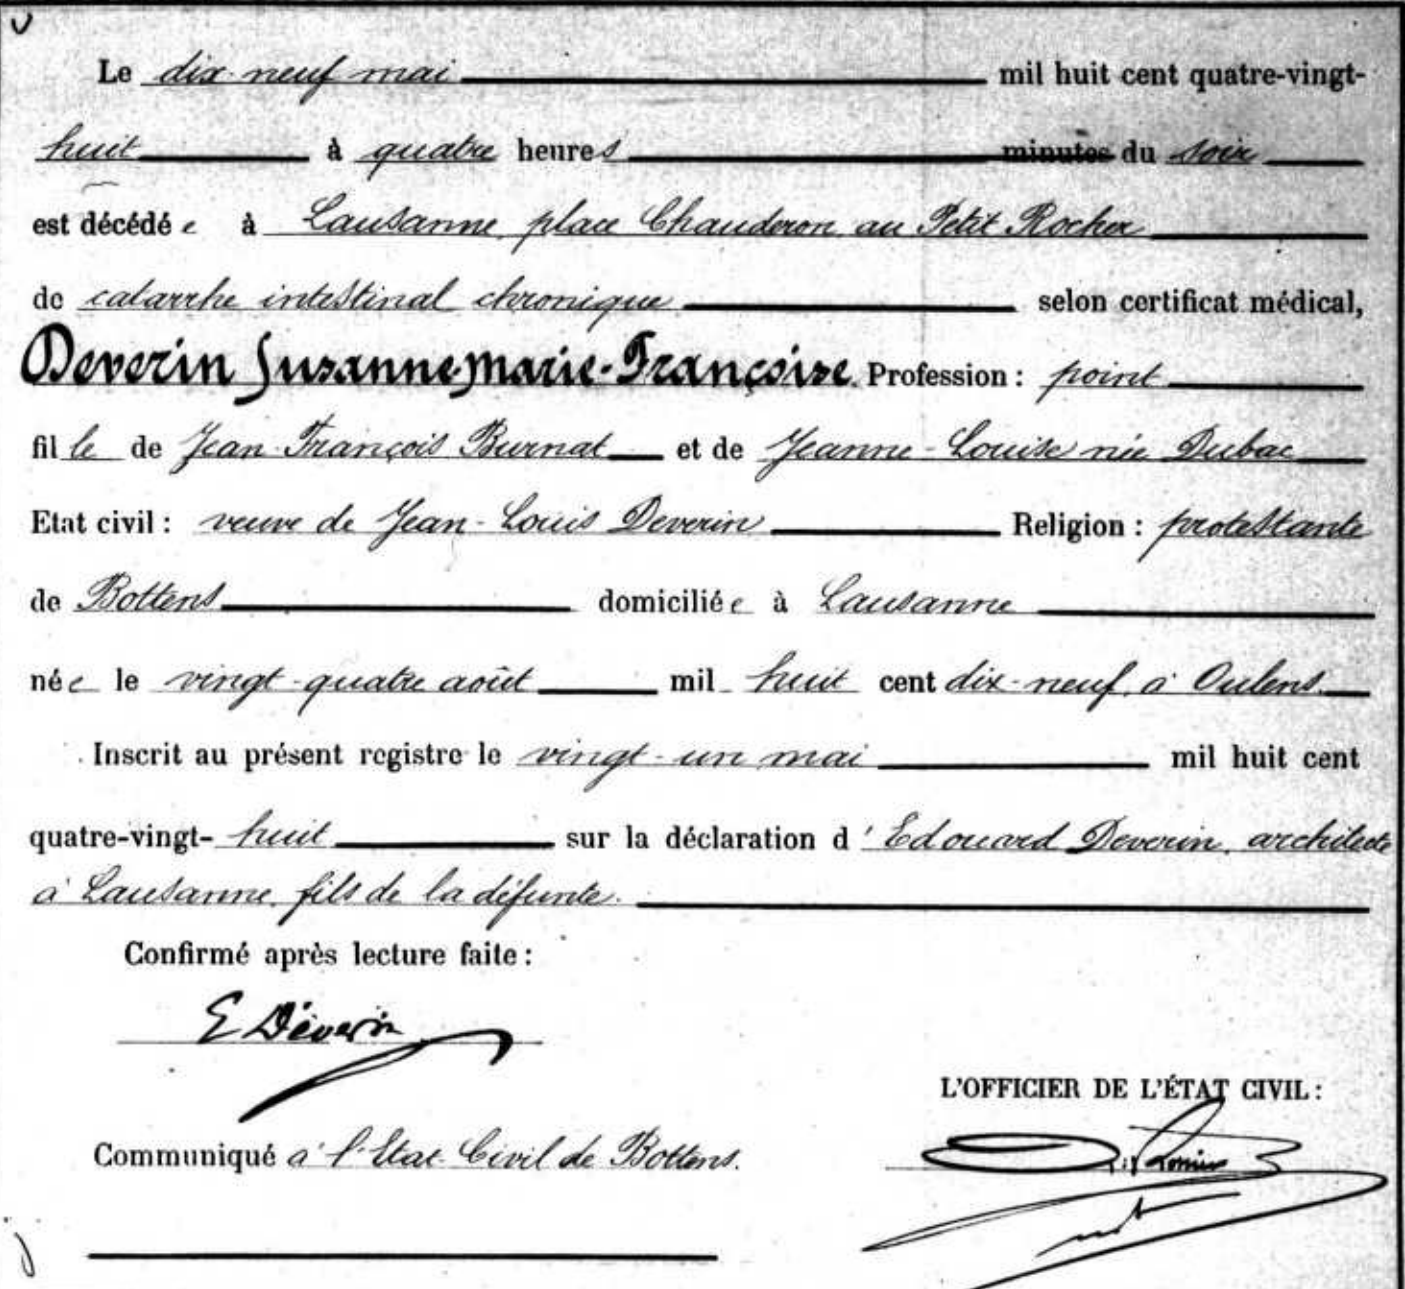 Le dix-neuf mai mil huit cent quatre-vingt-
huit à quatre heures minutes du soir
est décédée à Lausanne, place Chauderon au Petit Rocher
de catarrhe intestinal chronique selon certificat médical,
Deverin Suzanne-Marie-Françoise. Profession : point
fille de Jean-François Burnat et de Jeanne-Louise née Dubac
Etat civil : veuve de Jean-Louis Deverin Religion : protestante
de Bottens domiciliée à Lausanne
née le vingt-quatre août mil huit cent dix-neuf, à Oulens.
Inscrit au présent registre le vingt-un mai mil huit cent
quatre-vingt-huit sur la déclaration d'Edouard Deverin, architecte
à Lausanne, fils de la défunte.
Confirmé après lecture faite :
E Déverin
L'OFFICIER DE L'ÉTAT CIVIL :
Communiqué à l'Etat-Civil de Bottens.